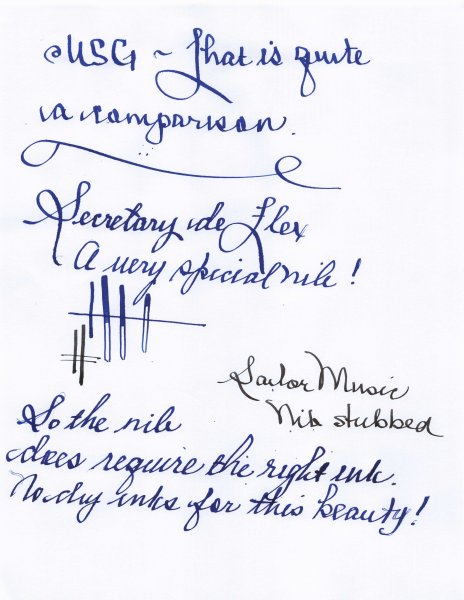 USG ~ That is quite
a comparison.
Secretary de Flex
A very special nib!
Sailor Music
Nib stubbed
So the nib
does require the right ink.
No dry inks for this beauty!